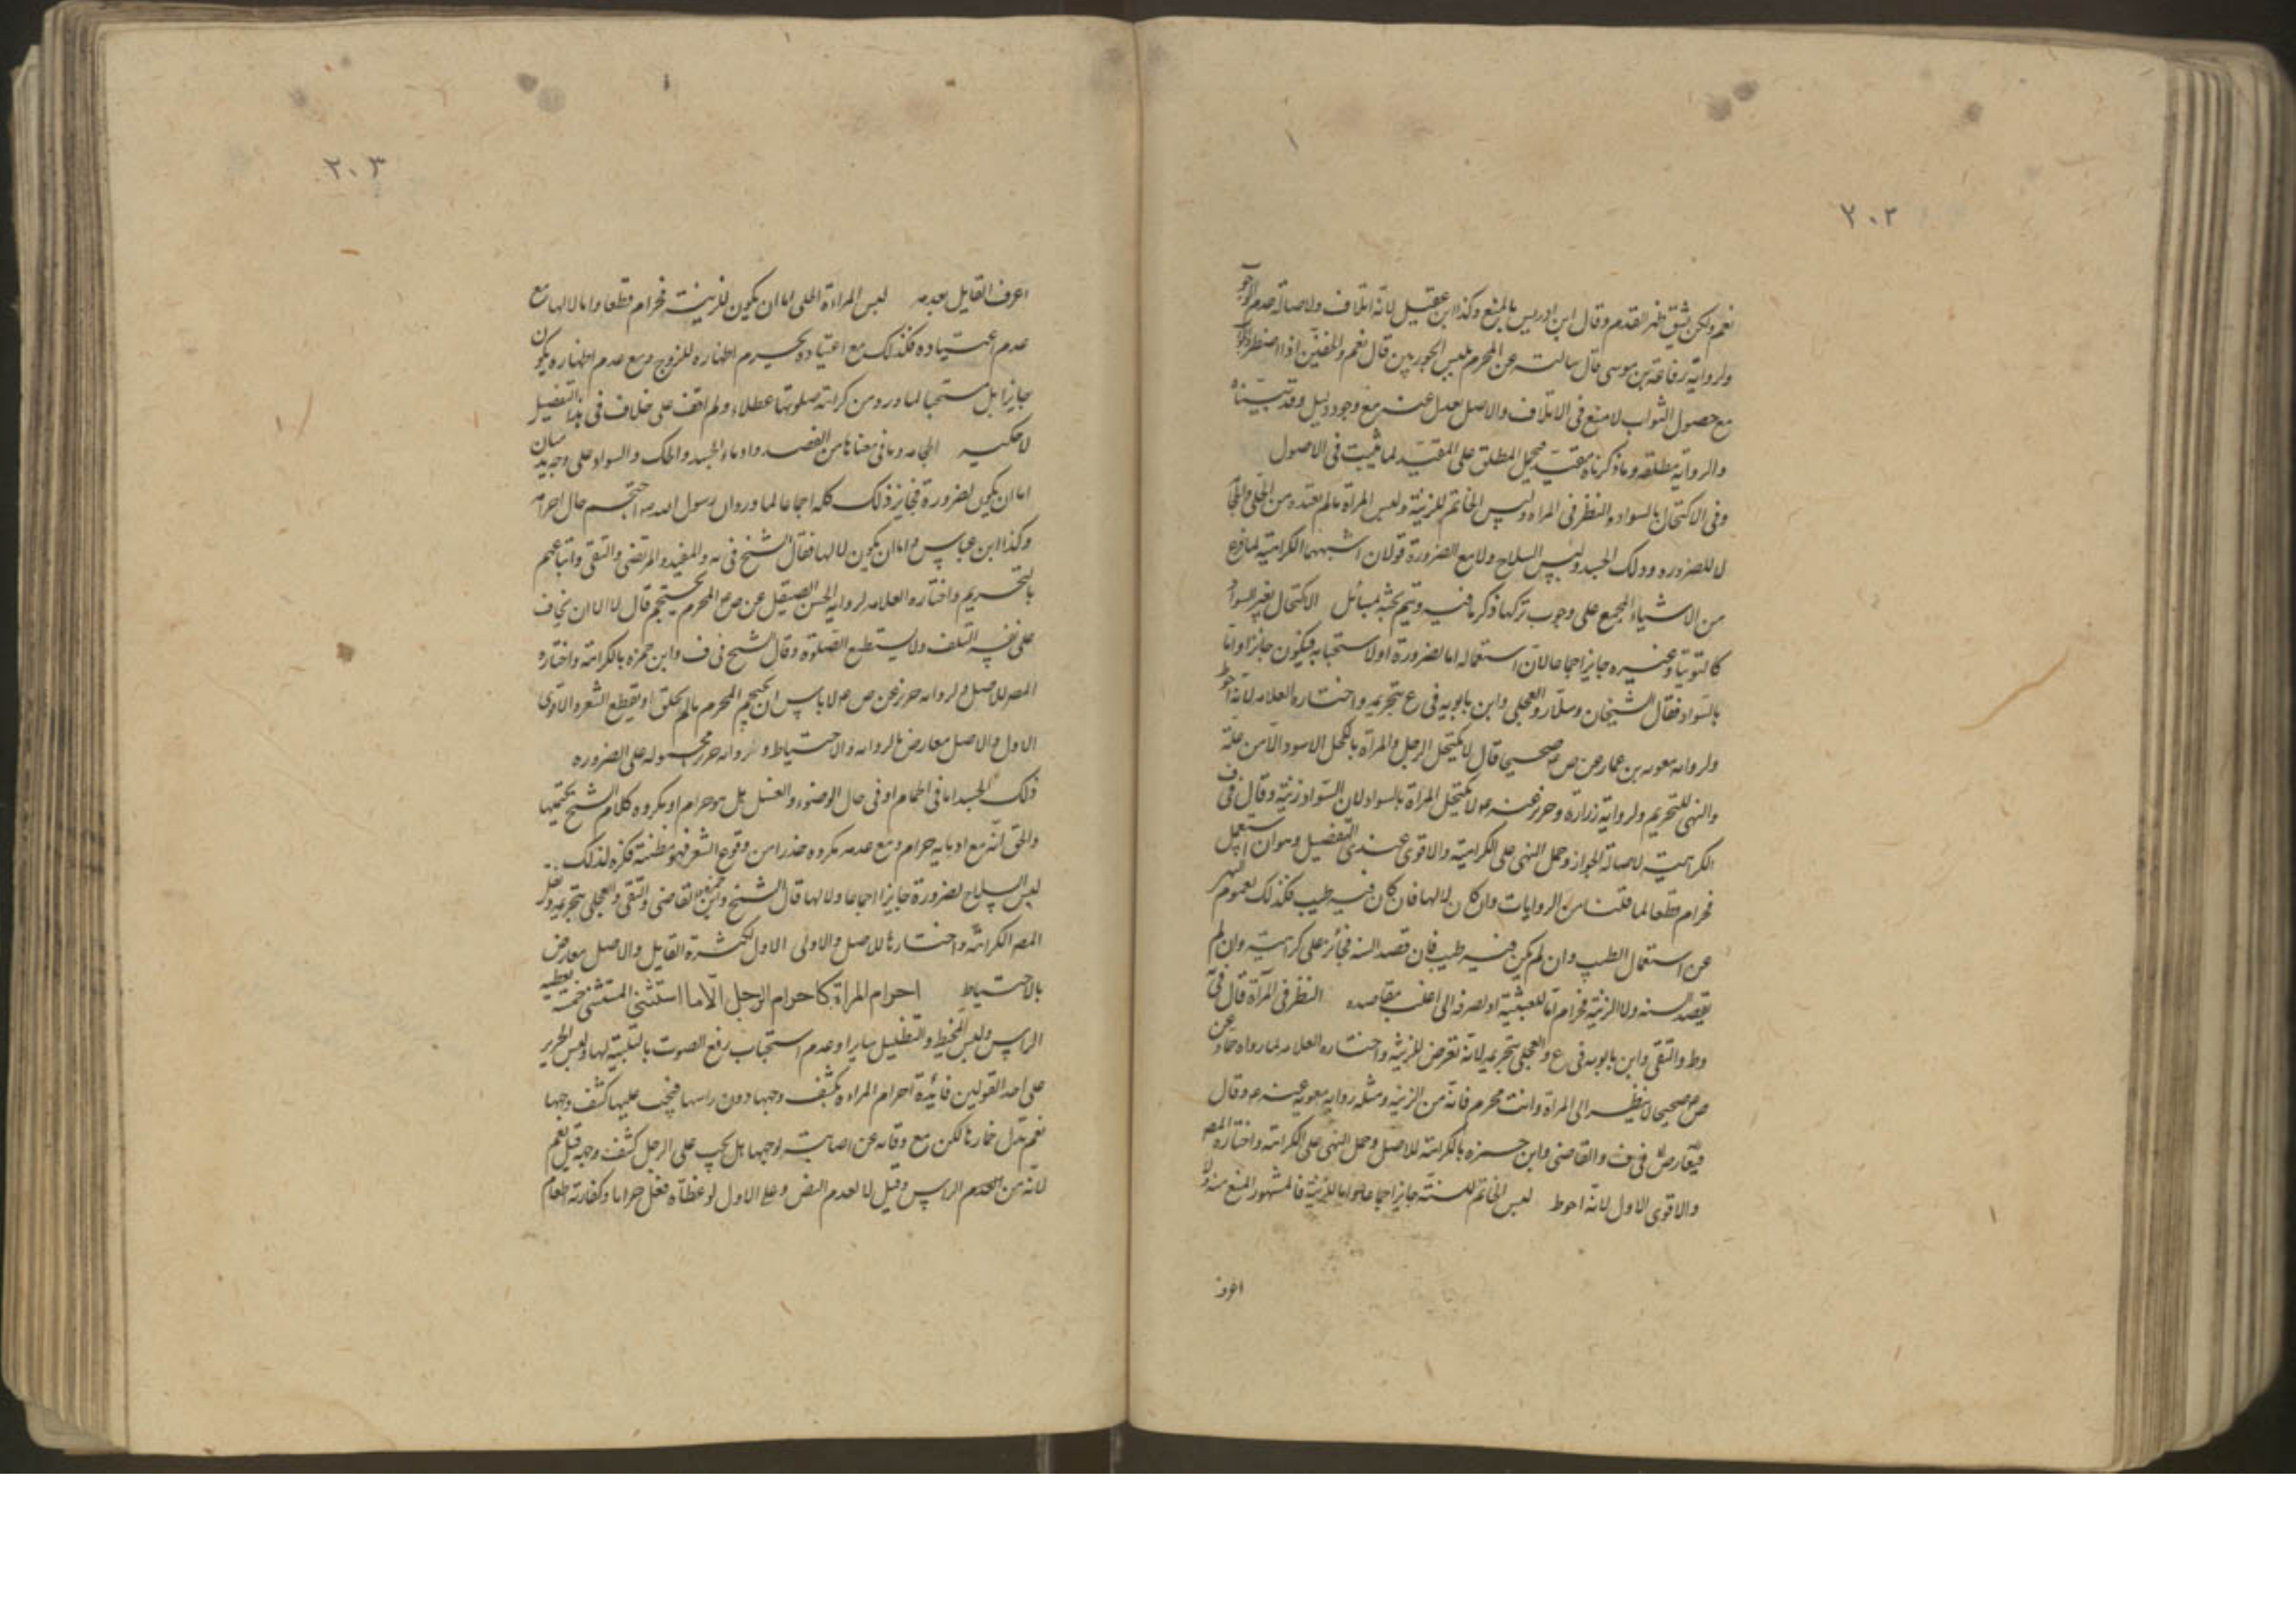 ٢٠٢
نعم ولكن يشق ظهر القدم وقال ابن ادريس بالمنع وكذا ابن عقيل لانه اتلاف ولاصالة عدم الوجوب
ولرواية رفاعة بن موسى قال سالته عن المحرم يلبس الجوربين قال نعم والخفين اذا اضطر
مع حصول الثواب لا منع في الاتلاف والاصل يعدل عنه مع وجود دليل وقد بيناه
والرواية مطلقه وما ذكرناه مقيد فيحمل المطلق على المقيد لما ثبت في الاصول
وفي الاكتحال بالسواد والنظر في المراه ولبس الخاتم للزينة ولبس المراة مالم تعتده من الحلى والحجامة
لا للضروره ودلك الجسد ولبس السلاح ولا مع الضرورة قولان اشبههما الكراهية لما فرغ
من الاشياء المجمع على وجوب تركها ذكر ما فيه ويتم بحثه بمسائل الاكتحال بغير السواد
كالتوتيا وغيره جايز اجماعا لان استعماله اما لضرورة او لاستحبابه فيكون جايزا واما
بالسواد فقال الشيخان وسلار والعجلى وابن بابويه في ع بتحريمه واختاره العلامه لانه احوط
ولروايه معويه بن عمار عن ص صحيحا قال لا يكتحل الرجل والمراة بالكحل الاسود الا من علة
والنهى للتحريم ولرواية زرارة وحريز عنه ع لا تكتحل المراة بالسواد لان السواد زينة وقال في ف
الكراهية لاصالة الجواز وحمل النهى على الكراهية والاقوى عندى التفصيل وهو ان استعمل
فحرام قطعا لما قلناه من الروايات وان كان لا لها فان كان فيه طيب فكذلك لعموم النهى
عن استعمال الطيب وان لم يكن فيه طيب فان قصد السنه فجائز على كراهية وان لم
يقصد السنه ولا الزينة فحرام اما للعبثية او لصرفه الى اغلب مقاصده النظر في المرآة قال في
وط والتقى وابن بابويه في ع والعجلى بتحريمه لانه تعرض للزينة واختاره العلامه لما رواه حماد عن
ص ع صحيحا لا ينظر الى المراة وانت محرم فانه من الزينة ومثله رواية معوية عنه ع وقال
في ف والقاضى وابن حمزه بالكراهة للاصل وحمل النهى على الكراهة واختاره المصر
والاقوى الاول لانه احوط لبس الخاتم للسنة جايز اجماعا واما للزينة فالمشهور المنع منه ولا
اعرف
٢٠٣
اعرف القايل بعدمه لبس المراءة الحلى اما ان يكون للزينة فحرام قطعا واما لا لها مع
عدم اعتياده فكذلك مع اعتياده يحرم اظهاره للزوج ومع عدم اظهاره يكون
جايزا بل مستحبا لما ورد من كراهة صلوتها عطلاء ولم اقف على خلاف في هذا التفصيل
لاحكيه الحجامه وما في معناها من الفصد وادماء الجسد والحك والسواك على وجه يدميان
اما ان يكون لضرورة فجايز ذلك كله اجماعا لما ورد ان رسول الله ص احتجم حال احرامه
وكذا ابن عباس واما ان يكون لا لها فقال الشيخ في يه والمفيد والمرتضى والتقى واتباعهم
بالتحريم واختاره العلامه لرواية الحسن الصيقل عن ص ع المحرم يحتجم قال لا الا ان يخاف
على نفسه التلف ولا يستطيع الصلوة وقال الشيخ في ف وابن حمزه بالكراهة واختاره
المصر للاصل ولروايه حريز عن ص ع لا باس ان يحتجم المحرم مالم يحلق او يقطع الشعر والاقوى
الاول والاصل معارض بالروايه والاحتياط وروايه حريز محموله على الضروره
دلك الجسد اما في الحمام او في حال الوضوء والغسل هل هو حرام او مكروه كلام الشيخ يحتملهما
والحق انه مع ادمايه حرام ومع عدمه مكروه حذرا من وقوع الشعر فهو مظنته فكره لذلك
لبس السلاح لضرورة جايز اجماعا ولا لها قال الشيخ وابن حمزه والقاضى والتقى والعجلى بتحريمه ونقل
المصر الكراهة واختارها للاصل والاولى الاول لكثرة القايل والاصل معارض
بالاحتياط احرام المراة كاحرام الرجل الا ما استثنى المستثنى خمسة تغطيه
الراس ولبس المخيط والتظليل سايرا وعدم استحباب رفع الصوت بالتلبية لها ولبس الحرير
على احد القولين فائدة احرام المراه بكشف وجهها دون راسها فيجب عليها كشف وجهها
نعم تسدل خمارها لكن مع وقايه عن اصابته لوجهها هل يجب على الرجل كشف وجهه قيل نعم
لانه من المحرم الراس وقيل لا لعدم النص وعلى الاول لو غطاه فعل حراما وكفارته اطعام